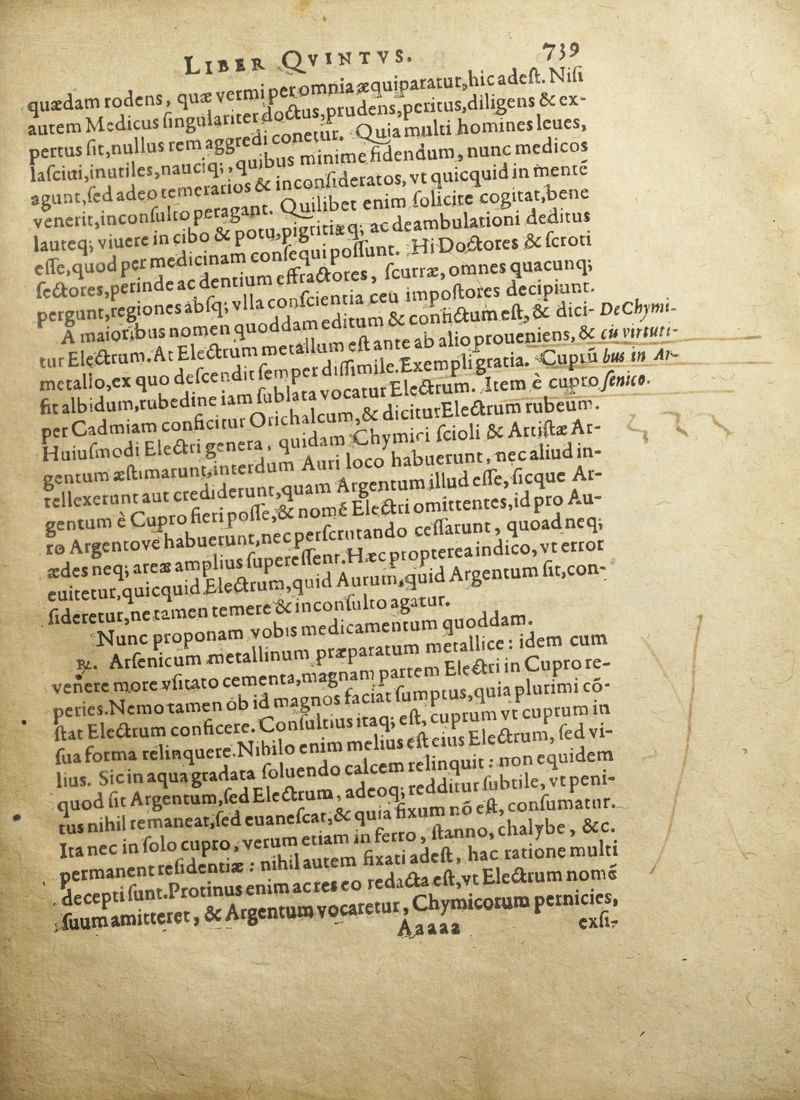 LIBER QVINTVS. 739
quædam rodens, quæ vermi per omnia æquiparatur, hic adest. Nisi
autem Medicus singulariter doctus, prudens, peritus, diligens & ex-
pertus sit, nullus rem aggredi conetur. Quia multi homines leues,
lasciui, inutiles, nauciq;, quibus minime fidendum, nunc medicos
agunt, sed adeo temerarios & inconsideratos, vt quicquid in mente
venerit, inconsulto peragant. Quilibet enim solicite cogitat, bene
lauteq; viuere in cibo & potu, pigritiæq; ac deambulationi deditus
esse, quod per medicinam consequi possunt. Hi Doctores & scroti
sectores, perinde ac dentium effractores, scurræ, omnes quacunq;
pergunt, regiones absq; vlla conscientia ceu impostores decipiunt.
A maioribus nomen quoddam editum & confictum est, & dici- De Chymi-
tur Electrum. At Electrum metallum est ante ab alio proueniens, & cū virtuti-
metallo, ex quo descendit semper dissimile. Exempli gratia. Cuprū bus in Ar-
fit albidum, rubedine iam sublata vocatur Electrum. Item è cupro senico.
per Cadmiam conficitur Orichalcum, & dicitur Electrum rubeum.
Huiusmodi Electri genera, quidam Chymici scioli & Artistæ Ar-
gentum æstimarunt, interdum Auri loco habuerunt, nec aliud in-
tellexerunt aut crediderunt, quam Argentum illud esse, sicque Ar-
gentum è Cupro fieri posse, & nomē Electri omittentes, id pro Au-
ro Argentove habuerunt, nec perscrutando cessarunt, quoad neq;
ædes neq; areæ amplius superessent. Hæc propterea indico, vt error
euitetur, quicquid Electrum, quid Aurum, quid Argentum sit, con-
sideretur, ne tamen temere & inconsulto agatur.
Nunc proponam vobis medicamentum quoddam.
℞. Arsenicum metallinum præparatum metallice: idem cum
venere more vsitato cementa, magnam partem Electri in Cupro re-
peries. Nemo tamen ob id magnos faciat sumptus, quia plurimi cō-
stat Electrum conficere. Consultius itaq; est, cuprum vt cuprum in
sua forma relinquere. Nihilo enim melius est eius Electrum, sed vi-
lius. Sic in aqua gradata soluendo calcem relinquit: non equidem
quod sit Argentum, sed Electrum, adeoq; redditur subtile, vt peni-
tus nihil remaneat, sed euanescat, & quia fixum nō est, consumatur.
Ita nec in solo cupro, verum etiam in ferro, stanno, chalybe, &c.
permanent residentiæ: nihil autem fixati adest, hac ratione multi
decepti sunt. Protinus enim ac res eo redacta est, vt Electrum nomē
suum amitteret, & Argentum vocaretur, Chymicorum pernicies,
Aaaaa exsi-